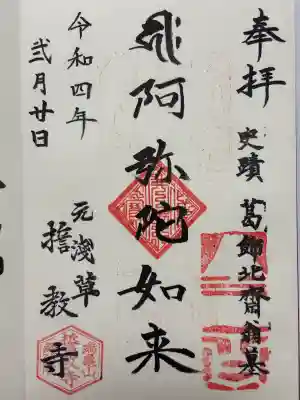 奉拝
史蹟 葛飾北齋翁墓
阿弥陀如来
令和四年
弐月廿日
元淺草
誓教寺